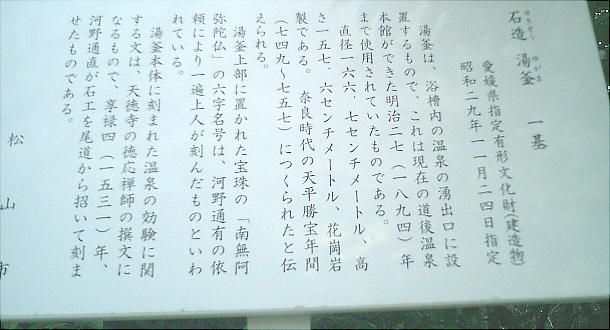 石造　湯釜　一基
愛媛県指定有形文化財(建造物)
昭和二九年一一月二四日指定
湯釜は、浴槽内の温泉の湧出口に設
置するもので、これは現在の道後温泉
本館ができた明治二七（一八九四）年
まで使用されていたものである。
直径一六六．七センチメートル、高
さ一五七．六センチメートル、花崗岩
製である。奈良時代の天平勝宝年間
（七四九～七五七）につくられたと伝
えられる。
湯釜上部に置かれた宝珠の「南無阿
弥陀仏」の六字名号は、河野通有の依
頼により一遍上人が刻んだものといわ
れている。
湯釜本体に刻まれた温泉の効験に関
する文は、天徳寺の徳応禅師の撰文に
なるもので、享禄四（一五三一）年、
河野通直が石工を尾道から招いて刻ま
せたものである。
松山市